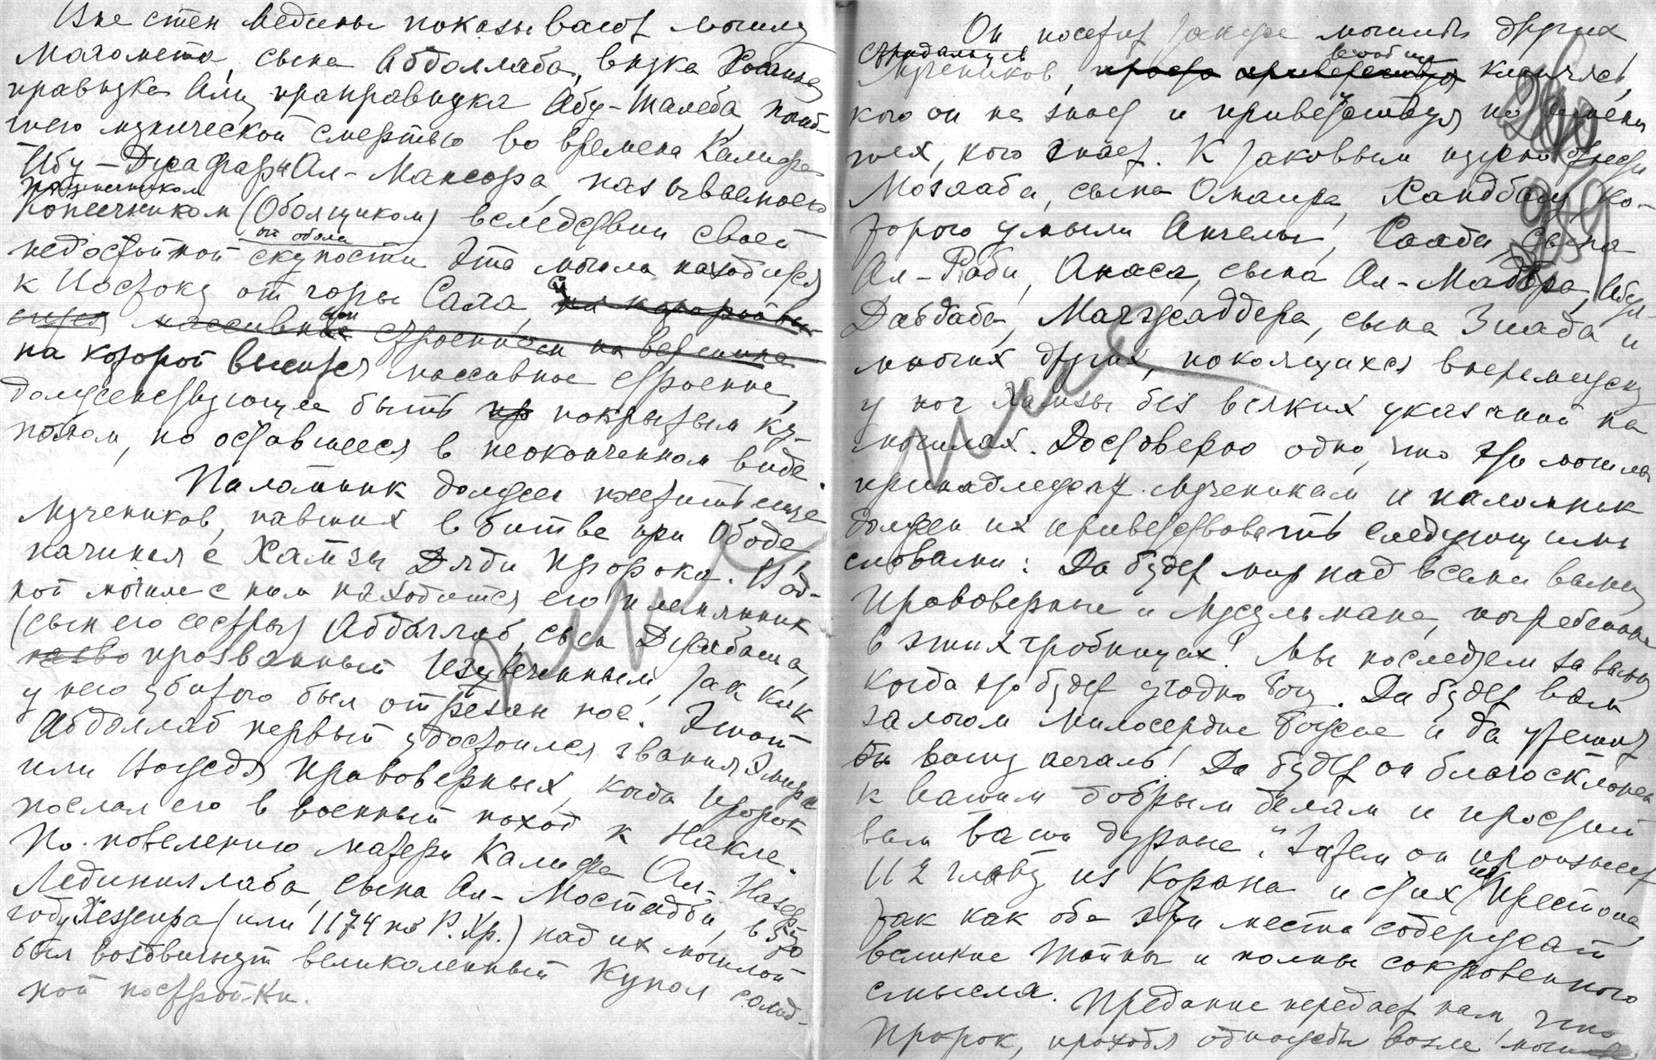 Вне стен Медины показывают могилу
Магомета, сына Абдоллаба, внука Хосаина
правнука Али, праправнука Абу-Талеба, погиб-
шего мученической смертью во времена Калифа
Абу-Джафара Ал-Мансора, называемого
Копеечником (Оболщиком) вследствии своей
от обола
недостойной скупости. Эта могила находится
к Востоку от горы Сала,
на которой высится массивное строение,
долженствующее быть покрытым ку-
полом, но оставшееся в неоконченном виде.
Паломник должен посетить еще
мучеников, павших в битве при Ободе,
начиная с Хамзы Дяди Пророка. В од-
ной могиле с ним находится его племянник
(сын его сестры) Абдаллаб, сын Джабаша,
прозванный Изувеченным, так как
у него убитого был отрезан нос. Этот
Абдоллаб первый удостоился звания Эмира
или Вождя Правоверных, когда Пророк
послал его в военный поход к Накле.
По повелению матери Калифа Ал-Назер
Лединиллаба, сына Ал-Мостадби, в 570
году Хеджира (или 1174 по Р.Хр.) над их могилой
был воздвигнут великолепный купол солид-
ной постройки.
Он посетит также могилы других
Мучеников, кланяясь,
кого он не знает и приветствуя по имени
тех, кого знает. К таковым нужно отнести
Мозааба, сына Омаира, Хандбалу ко-
торого умыли Ангелы, Саада, сына
Ал-Раби, Анаса, сына Ал-Мадбра, Абул-
Дабдаба, Магжаддера, сына Зиада и
многих других, покоящихся вперемешку
у ног Хамзы без всяких указаний на
могилах. Достоверно одно, что эти могилы
принадлежат мученикам, и паломник
должен их приветствовать следующими
словами: Да будет мир над всеми вами,
Правоверные и Мусульмане, погребенные
в этих гробницах! Мы последуем за вами,
когда это будет угодно Богу. Да будет вам
залогом милосердие Божие и да утешит
он вашу печаль! Да будет он благосклонен
к вашим добрым делам и простит
вам ваши дурные". Затем он произнесет
112 главу из Корана и стих Престола,
так как оба эти места содержат
великие тайны и полны сокровенного
смысла. Предание передает нам, что
Пророк, проходя однажды возле